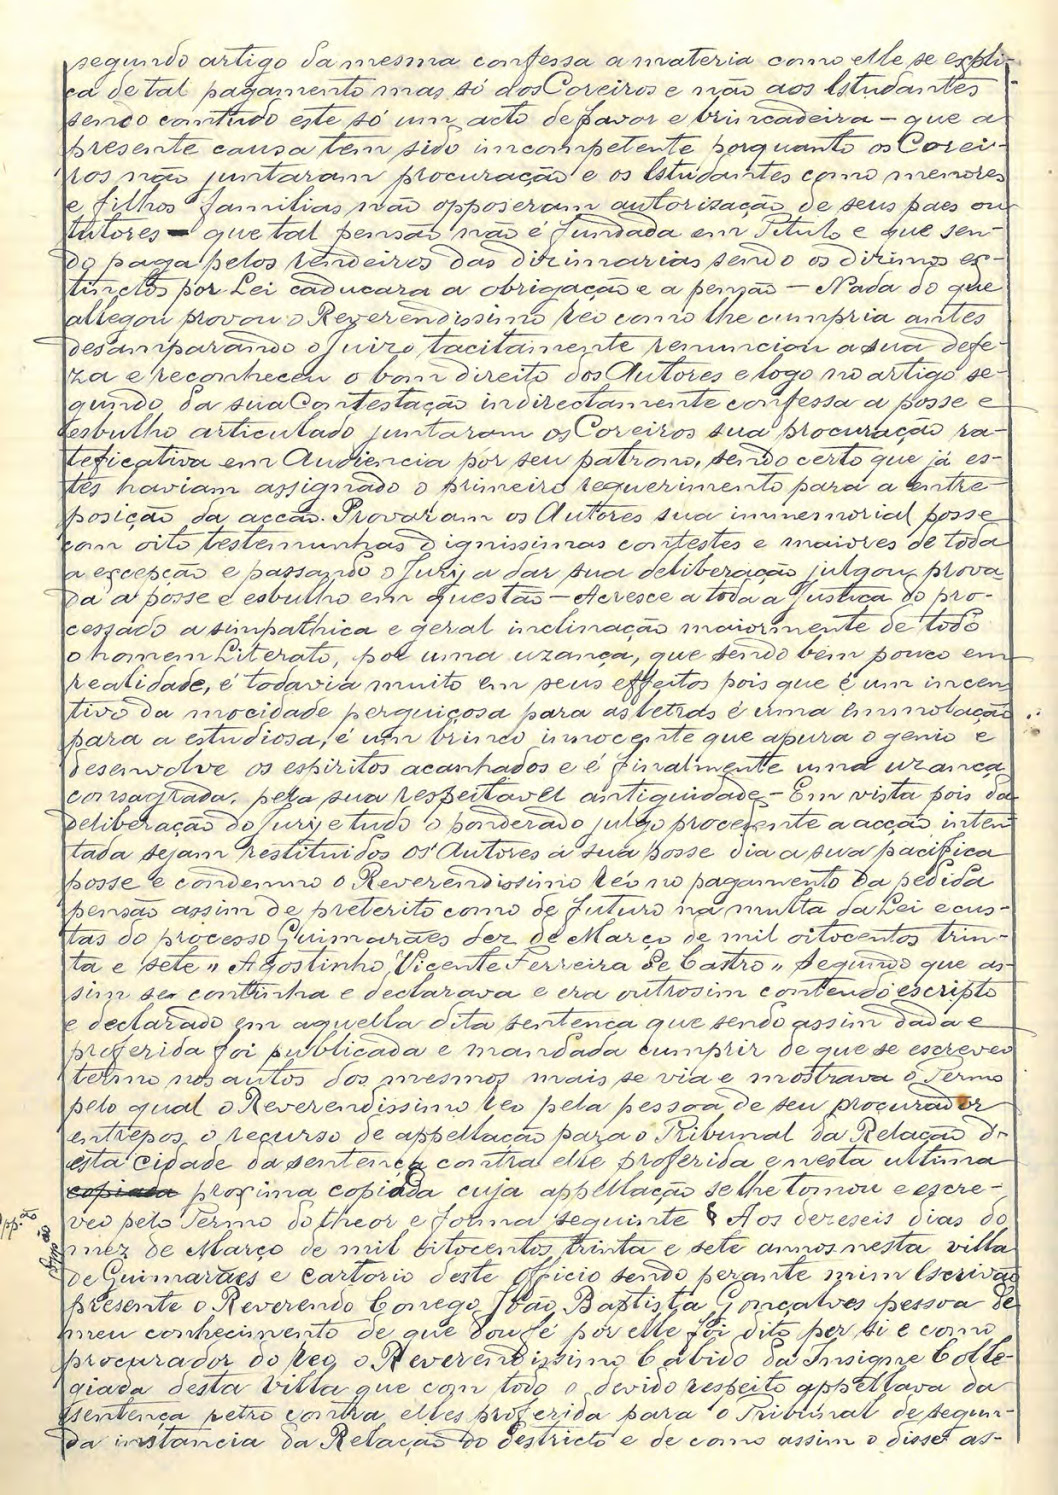 segundo artigo da mesma confessa a materia como elle se expli-
ca de tal pagamento mas só aos Coreiros e não aos Estudantes
sendo comtudo este só um acto de favor e brincadeira – que a
presente causa tem sido incompetente porquanto os Corei-
ros não juntaram procuração e os Estudantes como menores
e filhos familias não opposeram autorização de seus paes ou
tutores – que tal pensão não é fundada em Titulo e que sen-
do paga pelos rendeiros das dizimarias sendo os dizimos ex-
tinctos por Lei caducara a obrigação e a penção – Nada do que
allegou provou o Reverendissimo Reo como lhe cumpria antes
desamparando o Juizo tacitamente renunciou a sua defe-
za e reconheceu o bom direito dos Autores e logo no artigo se-
gundo da sua Contestação indirectamente confessa a posse e
esbulho articulado juntaram os Coreiros sua procuração ra-
teficativa em Audiencia por seu patrono, sendo certo que já es-
tes haviam assignado o primeiro requerimento para a entre-
posição da acção. Provaram os Autores sua immemorial posse
com oito testemunhas dignissimas contestes e maiores de toda
a excepção e passando o Jury a dar sua deliberação julgou prova-
da a posse e esbulho em questão – Acresce a toda a Justiça do pro-
cessado a simpathica e geral inclinação maiormente de todo
o homem Literato, por uma uzança, que sendo bem pouco em
realidade, é todavia muito em seus effeitos pois que é um incen-
tivo da mocidade perguiçosa para as letras é uma Emmolação
para a estudiosa, é um brinco innocente que apura o genio e
desenvolve os espiritos acanhados e é finalmente uma uzança
consagrada, pela sua respeitavel antiguidade – Em vista pois da
deliberação do Jury e tudo o ponderado julgo procedente a acção inten-
tada sejam restituidos os Autores á sua posse dia a sua pacifica
posse e condemno o Reverendissimo Réo no pagamento da pedida
pensão assim de preterito como de futuro na multa da Lei e cus-
tas do processo Guimarães dez de Março de mil oitocentos trin-
ta e sete " Agostinho Vicente Ferreira de Castro " Segundo que as-
sim se continha e declarava e era outrosim contendo escripto
e declarado em aquella dita sentença que sendo assim dada e
proferida foi publicada e mandada cumprir de que se escreveo
termo nos autos dos mesmos mais se via e mostrava o Termo
pelo qual o Reverendissimo Reo pela pessoa de seu procurador
entrepos o recurso de appellação para o Tribunal da Relação d-
esta cidade da sentença contra elle proferida e nesta ultima
copiada proxima copiada cuja appellação se lhe tomou e escre-
App.ção
veo pelo Termo do theor e forma seguinte § Aos dezeseis dias do
mez de Março de mil oitocentos trinta e sete annos nesta villa
de Guimarães e cartorio deste officio sendo perante mim Escrivão
presente o Reverendo Conego João Baptista Gonçalves pessoa de
meu conhecimento de que dou fé por elle foi dito per si e como
procurador do Reo o Reverendissimo Cabido da Insigne Colle-
giada desta Villa que com todo o devido respeito appellava da
sentença retro contra elles proferida para o Tribunal de segun-
da instancia da Relação do destricto e de como assim o disse as-